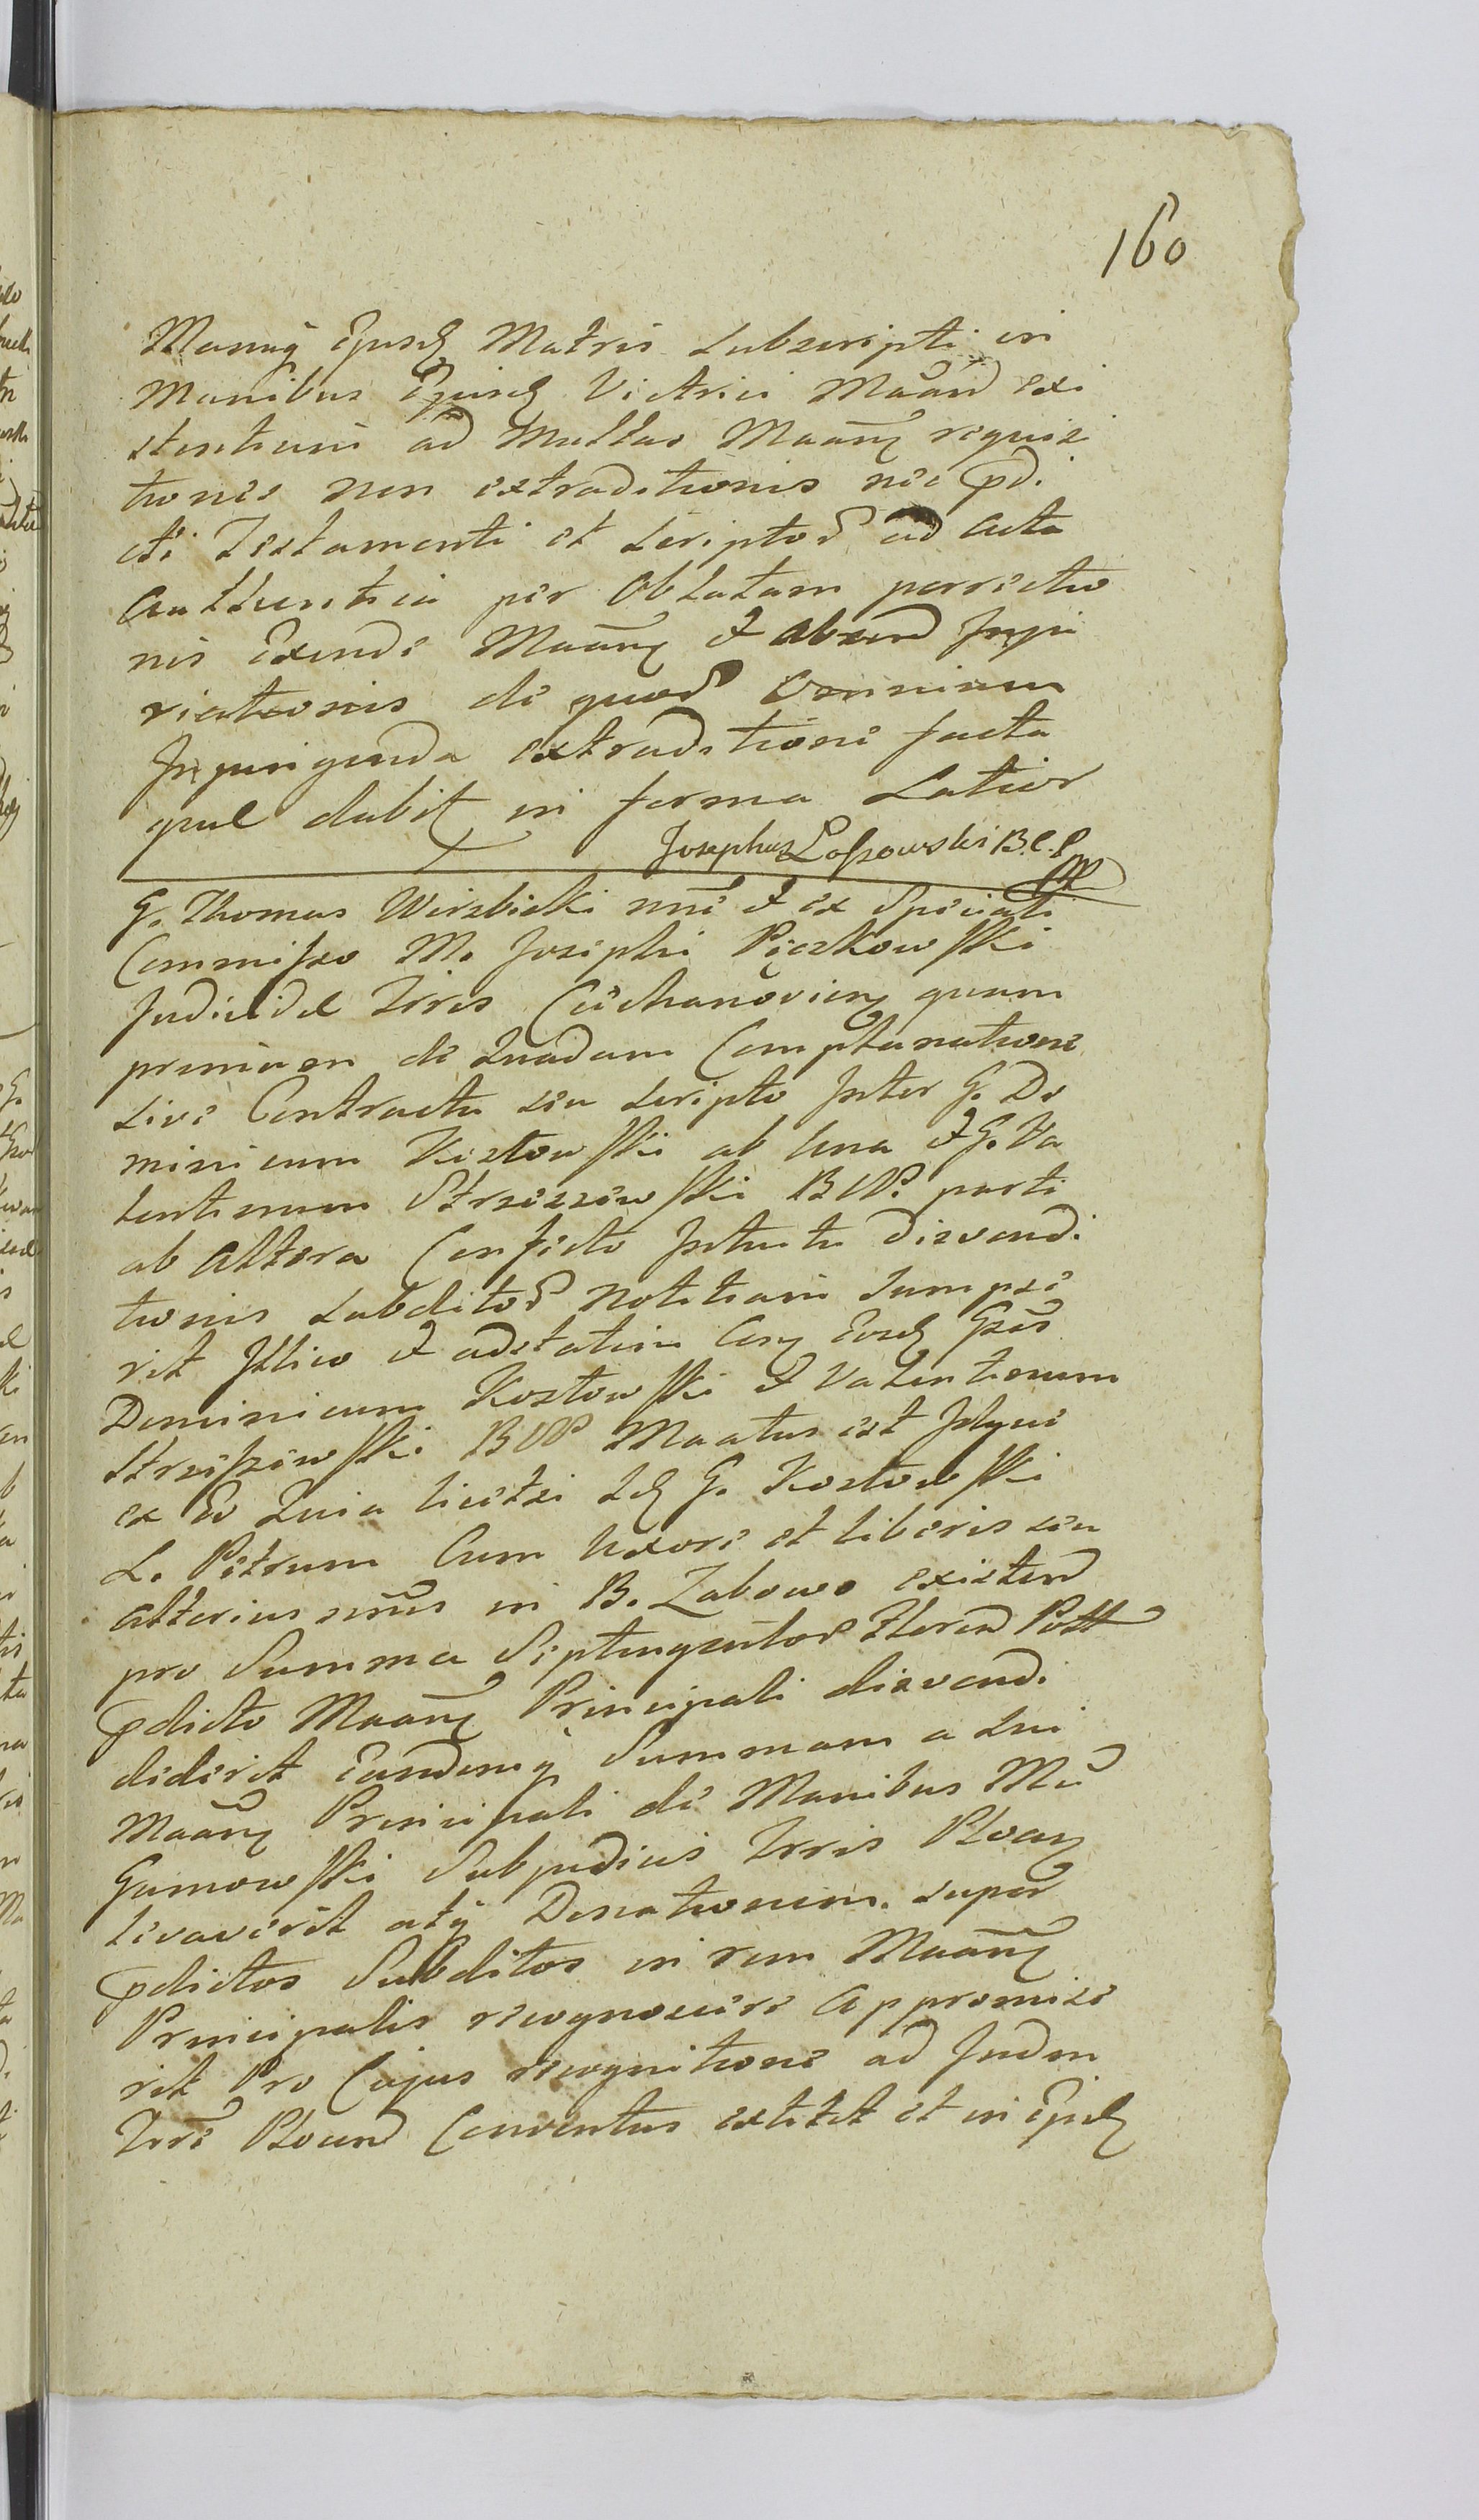 160
Manuq Ejusd Matris Subscripti in
Manibus Ejusd Victrici Maan exi
stentium ad Multas Maan requisi
tiones non extraditionis nec pdi
cti Testamenti et Scriptor ad Acta
Authentica per Oblatam porrectio
nis Exinde Maan et absend Inju
riationis de quor Omnium
Injungenda extraditione facta
qual dabit in forma Latior
Josephus Lossowski B.C.P
mp
G. Thomas Wierzbicki nne et ex Speciali
Commisso M. Josephi Pięczkowski
Judicis Trris Ciechanovien quam
primum de quadam Complanatione
sive Contractu seu scripto Inter G. Do
minicum Kozłowski ab Una et G. Va
lentinum Strzeszewski BVP parti
ab Altera Confecto Intuitu divendi
tionis Subditor notitiam Sumpse
rit Illico et adstatim Con Eosd Gsos
Dominicum Kozłowski et Valentinum
Strzeszewski BVP Maatus est Idque
ex Eo Quia licet Id G. Kozłowski
L. Petrum Cum Uxore et liberis seu
alterius nnis in B. Zabowo existen
pro Summa Septingentor flren Poll
pdicto Maan Principali divendi
diderit Eandemq Summam a sui
Maan Principali de Manibus M
Gumowski Subjudicis Trris Plocen
levaverit atq Donationem super
pdictos Subditos in rem Maan
Principalis recognoscere Appromise
rit Pro Cujus recognitione ad Judm
Trre Plocen Conventus extitit et in Ejusd